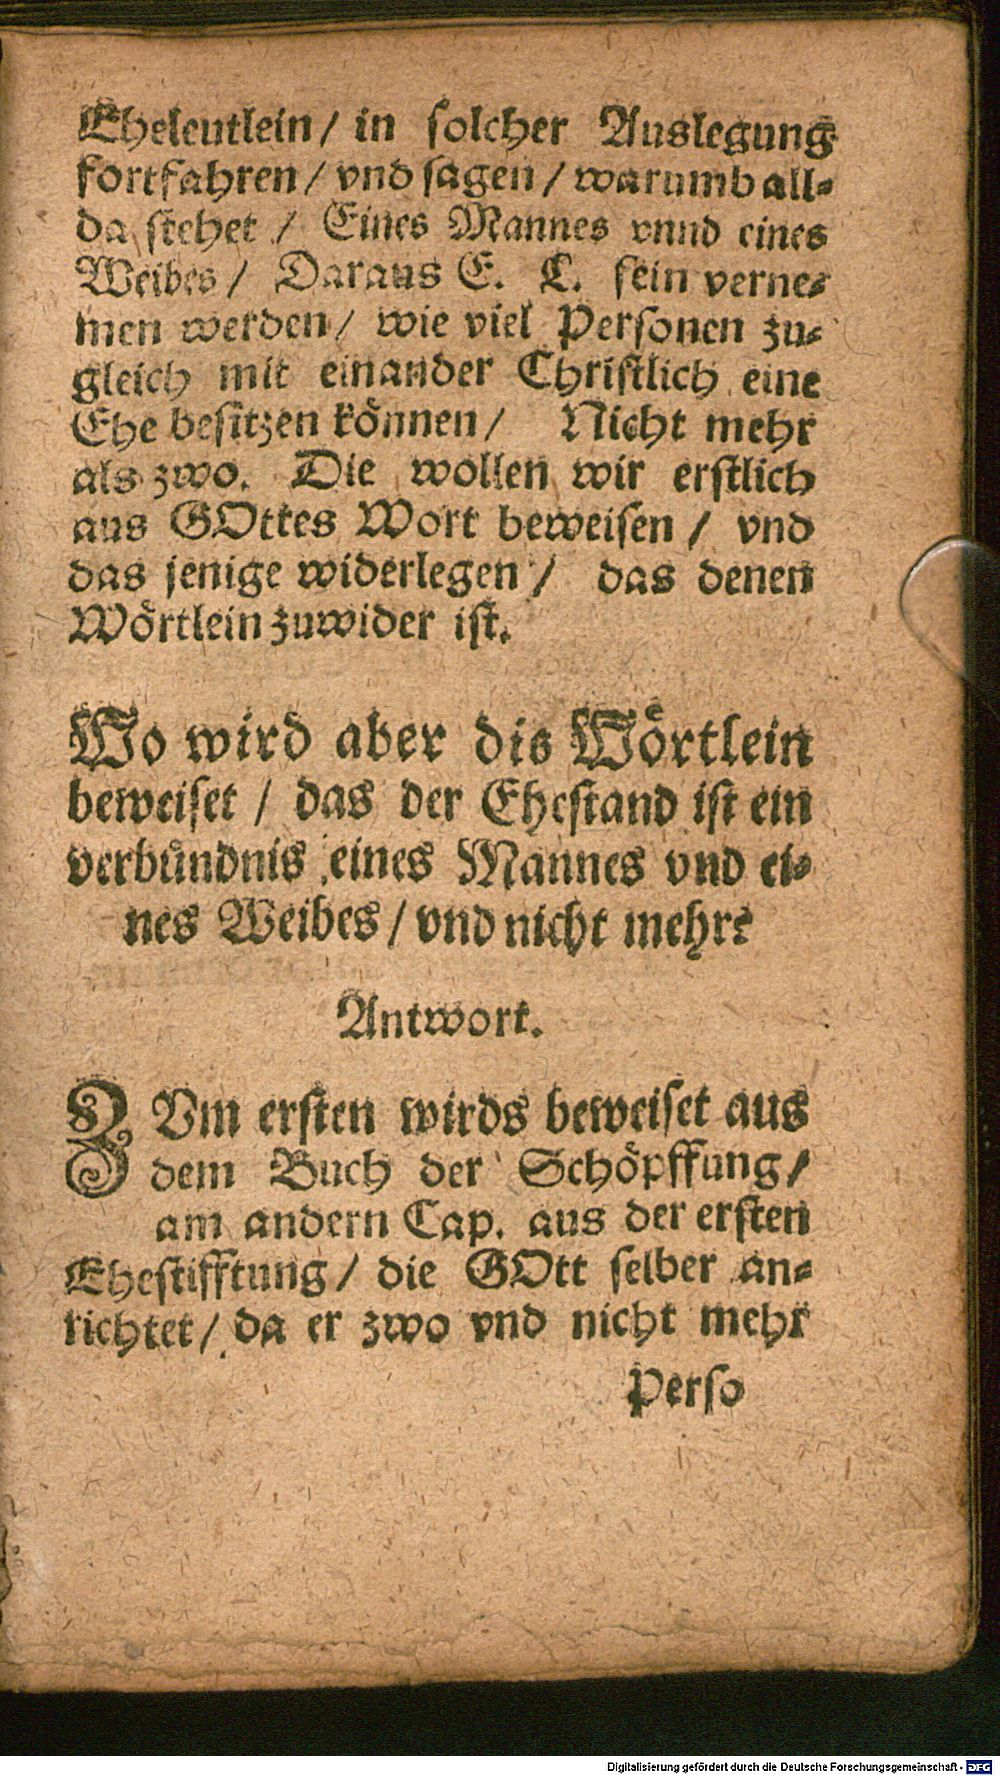 Eheleutlein / in solcher Auslegung
fortfahren / vnd sagen / warumb all-
da stehet / Eines Mannes vnnd eines
Weibes / Daraus E. L. fein verne-
men werden / wie viel Personen zu-
gleich mit einander Christlich eine
Ehe besitzen können / Nicht mehr
als zwo. Die wollen wir erstlich
aus GOttes Wort beweisen / vnd
das jenige widerlegen / das denen
Wörtlein zuwider ist.
Wo wird aber dis Wörtlein
beweiset / das der Ehestand ist ein
verbündnis eines Mannes vnd ei-
nes Weibes / vnd nicht mehr?
Antwort.
ZVm ersten wirds beweiset aus
dem Buch der Schöpffung /
am andern Cap. aus der ersten
Ehestifftung / die GOtt selber an-
richtet / da er zwo vnd nicht mehr
Perso
Digitalisierung gefördert durch die Deutsche Forschungsgemeinschaft - DFG